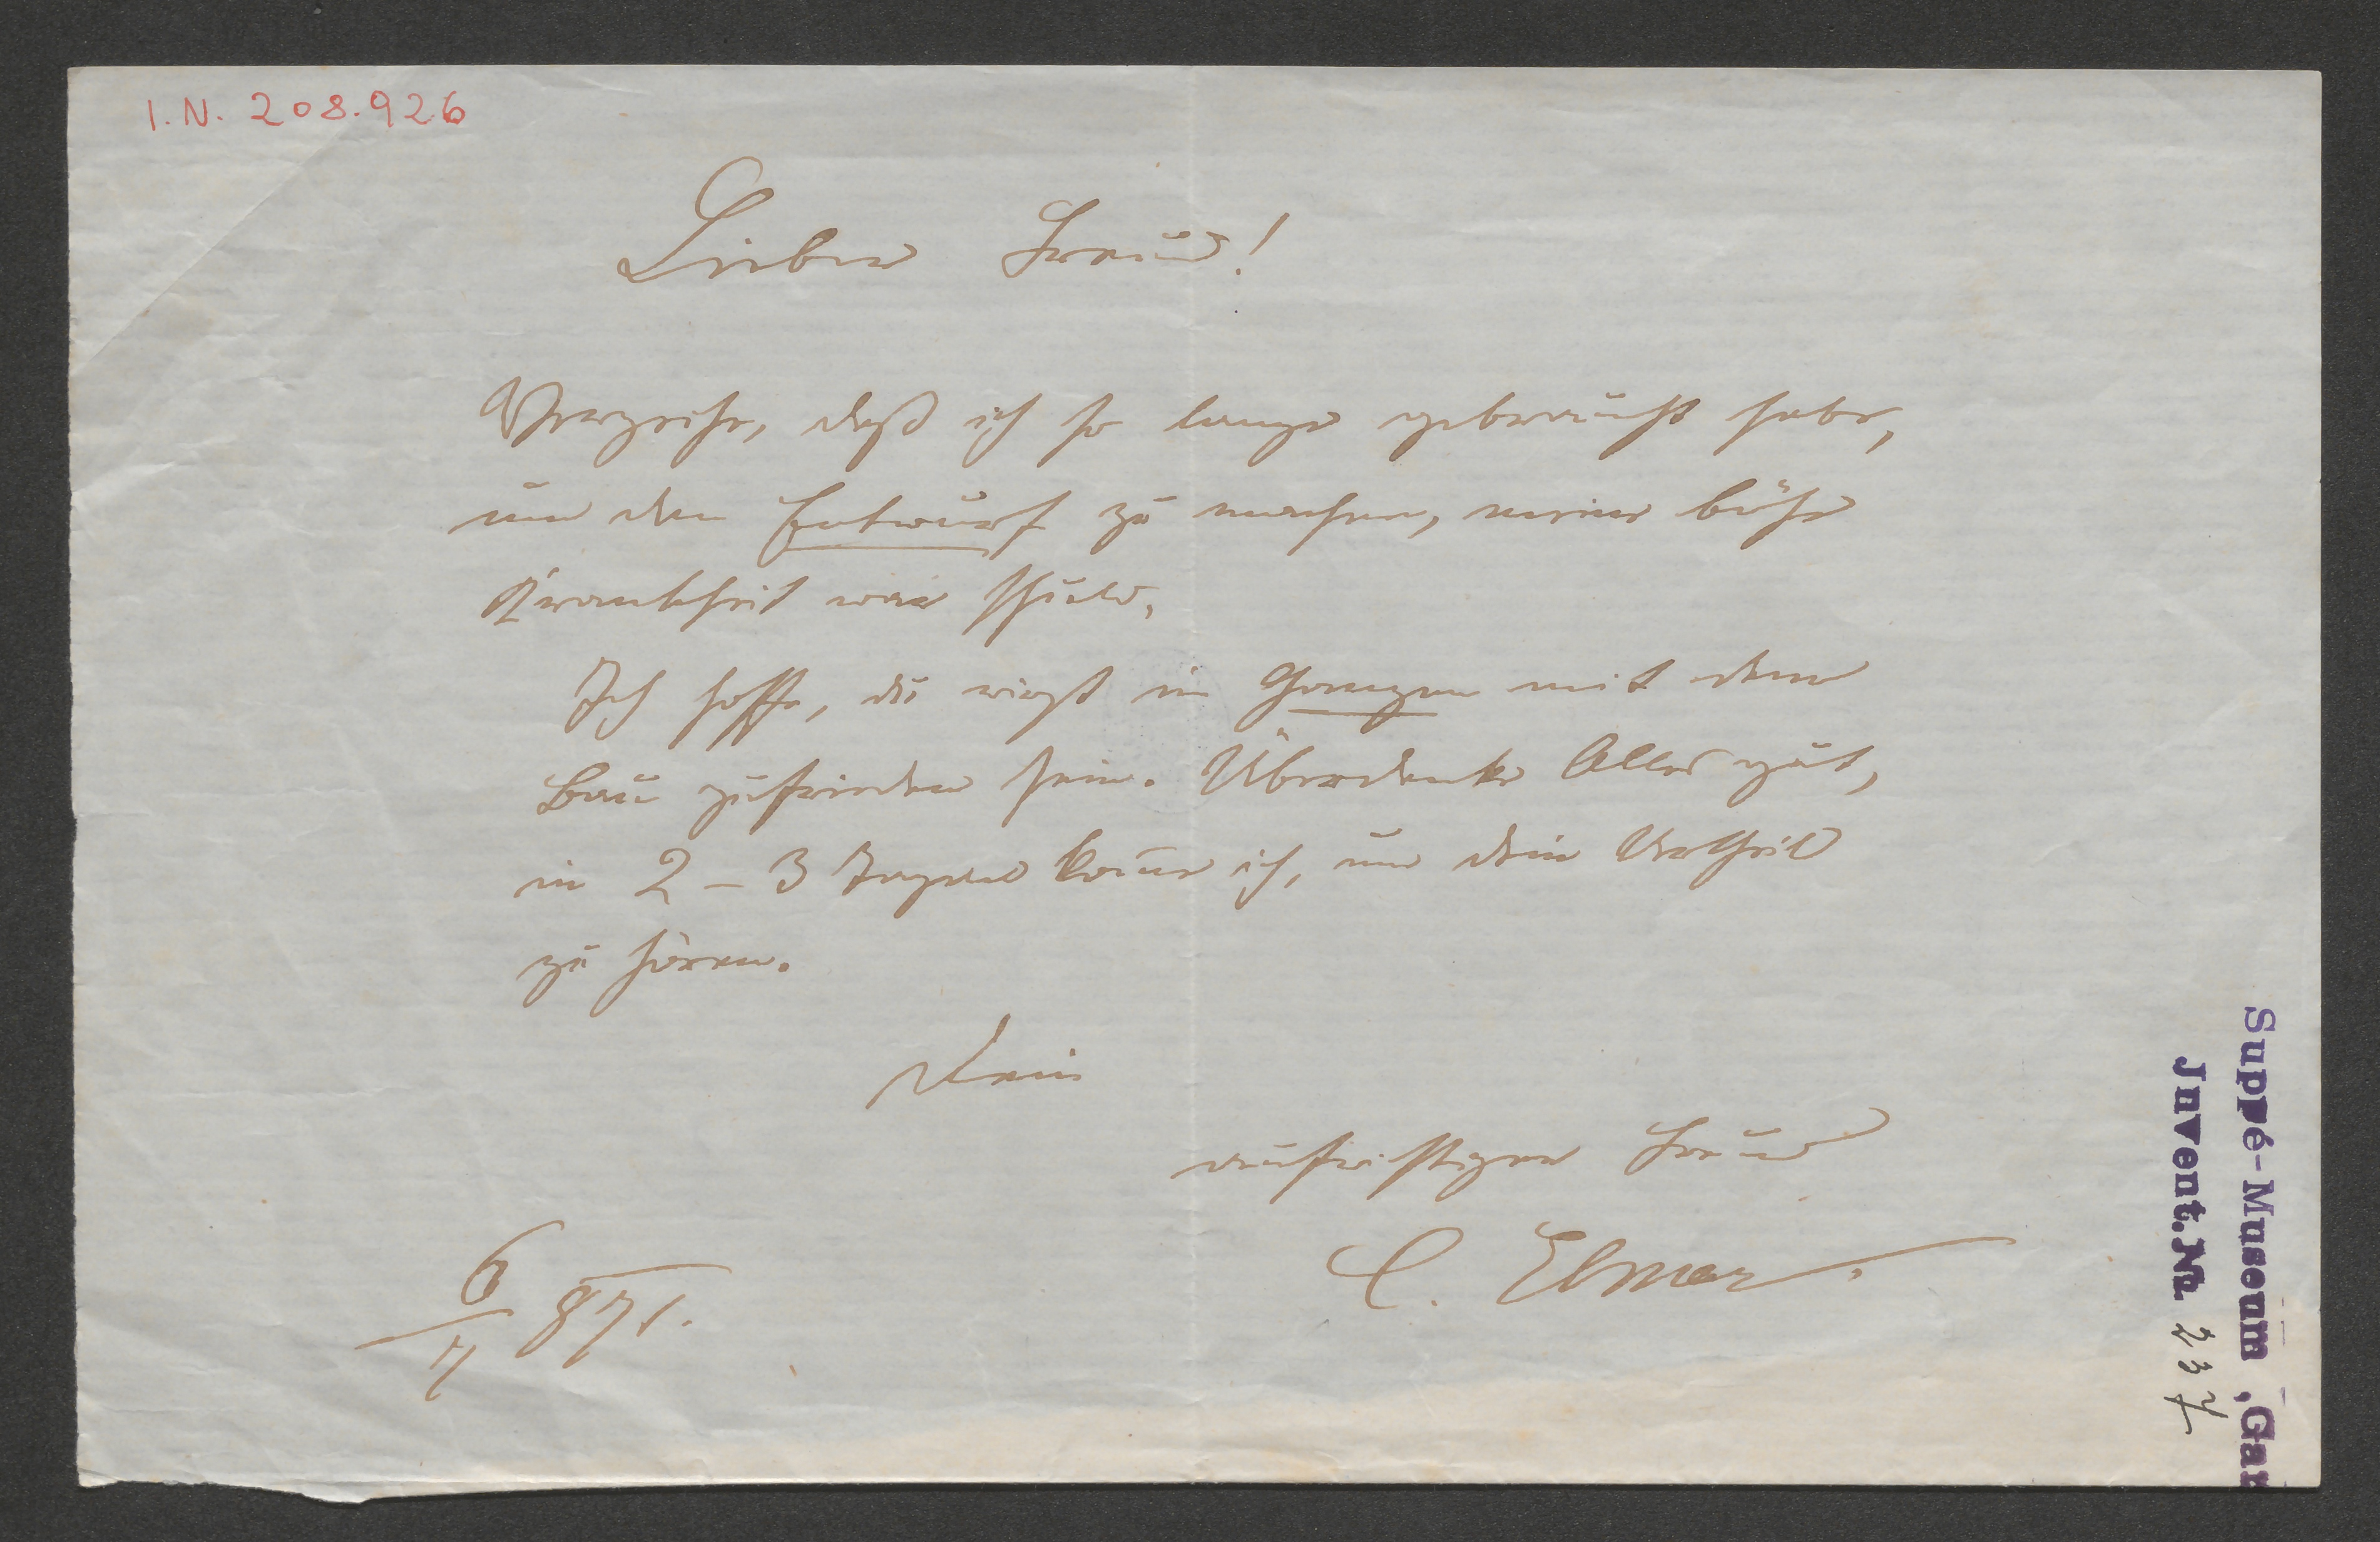 I.N. 208.926
Lieber Freund!
Verzeihe, daß ich so lange gebraucht habe,
um den Entwurf zu machen, meine böse
Krankheit war Schuld.
Ich hoffe, du wirst im Ganzen mit dem
Bau zufrieden sein. Überdenke Alles gut,
in 2 – 3 Tagen kom̅e ich, um dein Urtheil
zu hören.
Dein
aufrichtiger Freund
C. Elmar.
6/7 871.
Suppé-Museum, Gar
Jnvent.№ 237